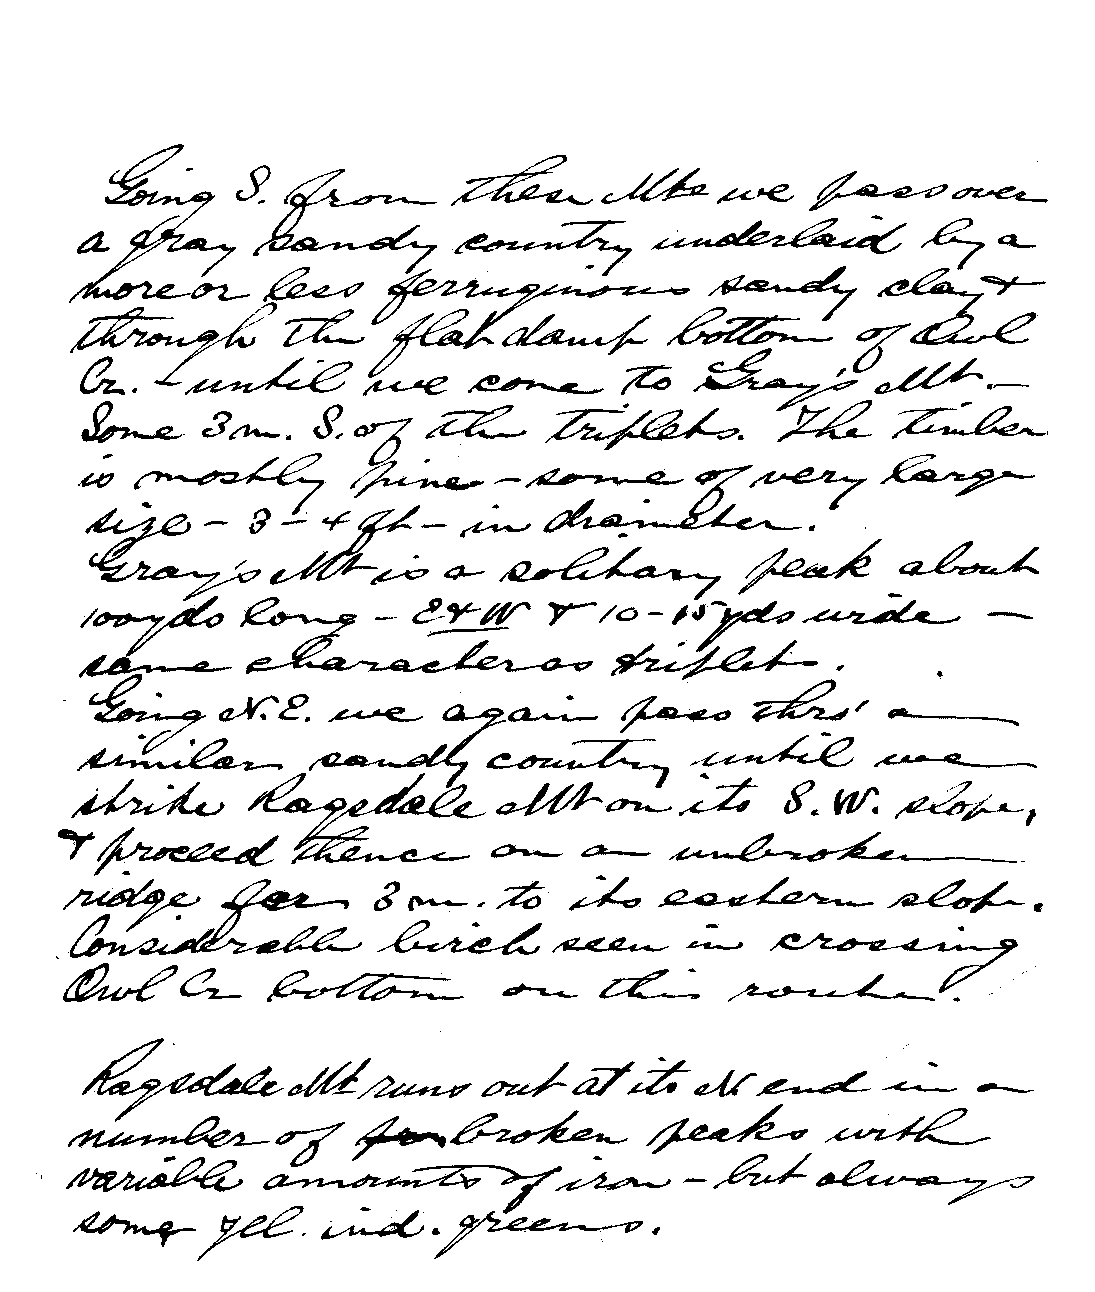 Going S. from these Mts we pass over
a gray sandy country underlaid by a
more or less ferruginous sandy clay &
through the flat damp bottom of Owl
Cr. - until we come to Gray's Mt. -
Some 3 m. S. of the triplets. The timber
is mostly pine - some of very large
size - 3 - 4 ft - in diameter.
Gray's Mt is a solitary peak about
100 yds long - E & W & 10 - 15 yds wide -
same character as triplets.
Going N.E. we again pass thro' a
similar sandy country until we
strike Ragsdale Mt on its S.W. slope,
& proceed thence on an unbroken
ridge for 3 m. to its eastern slope.
Considerable birch seen in crossing
Owl Cr bottom on this route.
Ragsdale Mt runs out at its N end in a
number of broken peaks with
variable amounts of iron - but always
some yel. ind. greens.